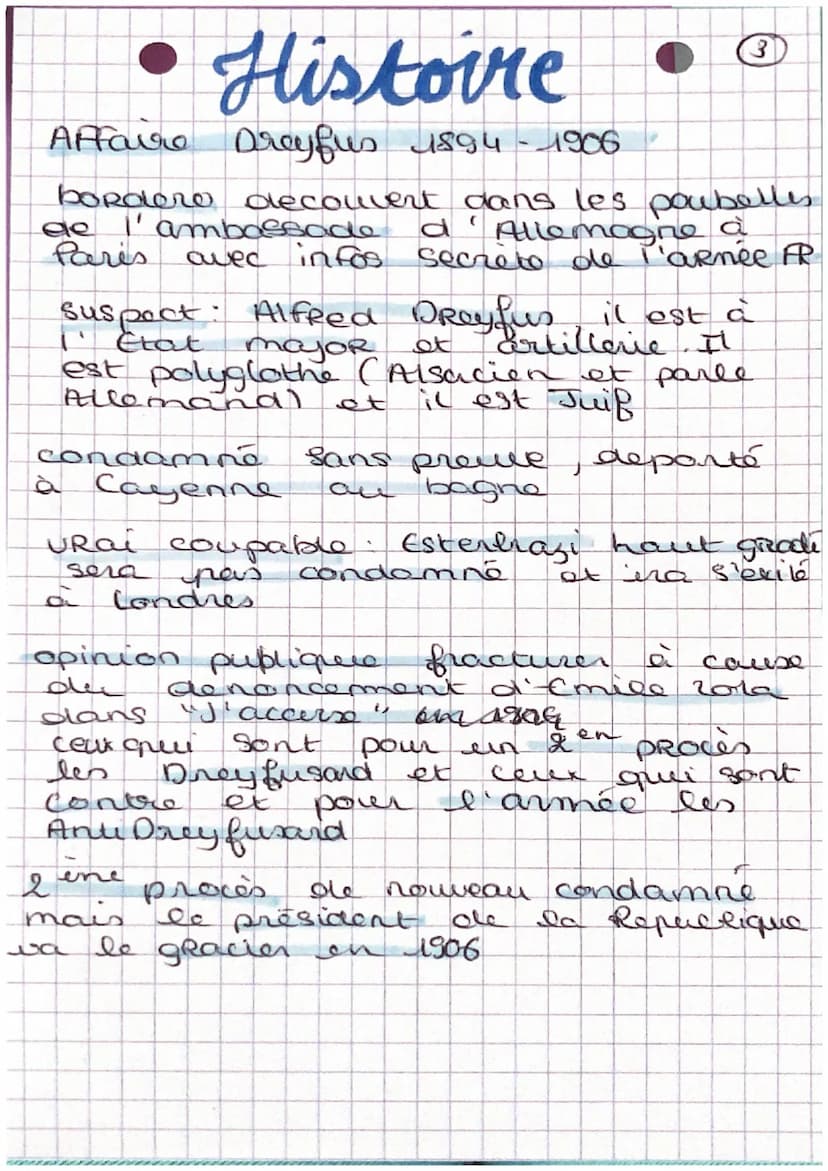 3
Histoire
Affaire Dreyfus 1894-1906
bordero decouvert dans les poubelles
de l'ambassade d'Allemagne à
Paris avec infos secrèto de l'armée FR
suspect: Alfred Dreyfus il est à
l'État major et artillerie. Il
est polyglothe (Alsacien et parle
Allemand) et il est Juif
condamné sans preuve, deporté
à Cayenne au bagne
vrai coupable: Esterhazi haut gradé
sera pas condamné et ira s'exilé
à Londres
opinion publique fracturer à cause
du denoncement d'Emile Zola
dans "J'accuse" en
ceux qui sont pour un 2en procès
les Dreyfusard et ceux qui sont
contre et pour l'armée les
Anti Dreyfusard
2ème procès de nouveau condamné
mais le président de la Republique
va le gracier en 1906